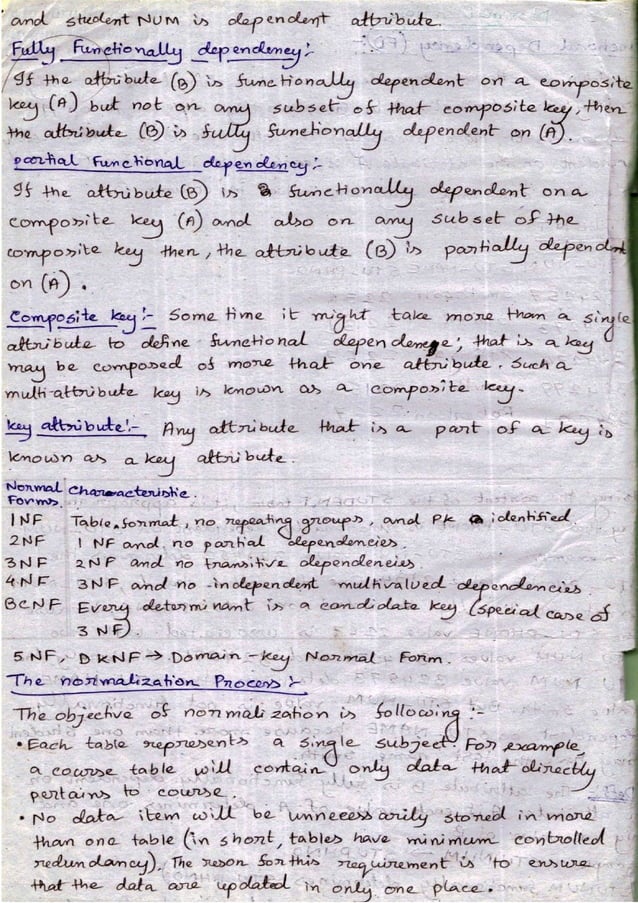 and student NUM is dependent attribute.
Fully Functionally dependency :-
If the attribute (B) is functionally dependent on a composite
key (A) but not on any subset of that composite key, then
the attribute (B) is fully functionally dependent on (A).
partial Functional dependency :-
If the attribute (B) is functionally dependent on a
composite key (A) and also on any subset of the
composite key then, the attribute (B) is partially dependent
on (A).
Composite key :- Some time it might take more than a single
attribute to define functional dependence; that is a key
may be composed of more that one attribute. Such a
multi-attribute key is known as a composite key.
key attribute :- Any attribute that is a part of a key is
known as a key attribute.
Normal Characteristic.
Forms.
1NF Table format, no repeating groups, and PK identified
2NF 1 NF and no partial dependencies
3NF 2NF and no transitive dependencies.
4NF 3NF and no independent multivalued dependencies.
BCNF Every determinant is a candidate key (special case of
3 NF).
5 NF, DKNF → Domain-key Normal Form.
The normalization Process :-
The objective of normalization is following :-
• Each table represents a single subject. For example,
a course table will contain only data that directly
pertains to course.
• No data item will be unnecessarily stored in more
than one table (in short, tables have minimum controlled
redundancy). The reson for this requirement is to ensure
that the data are updated in only one place.